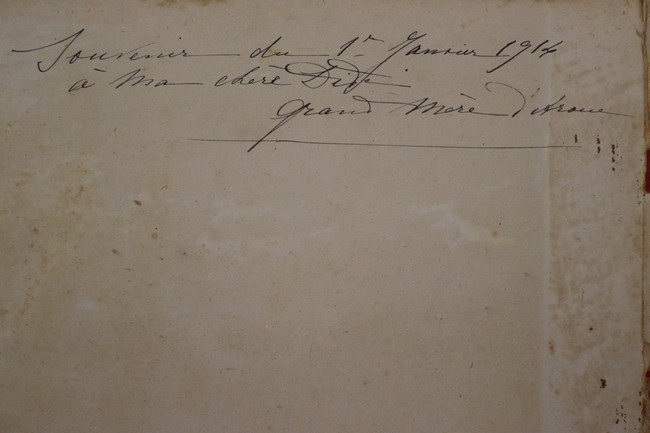 Souvenir du 1er Janvier 1914
à Ma chère Didi
Grand Mère d'Aroue